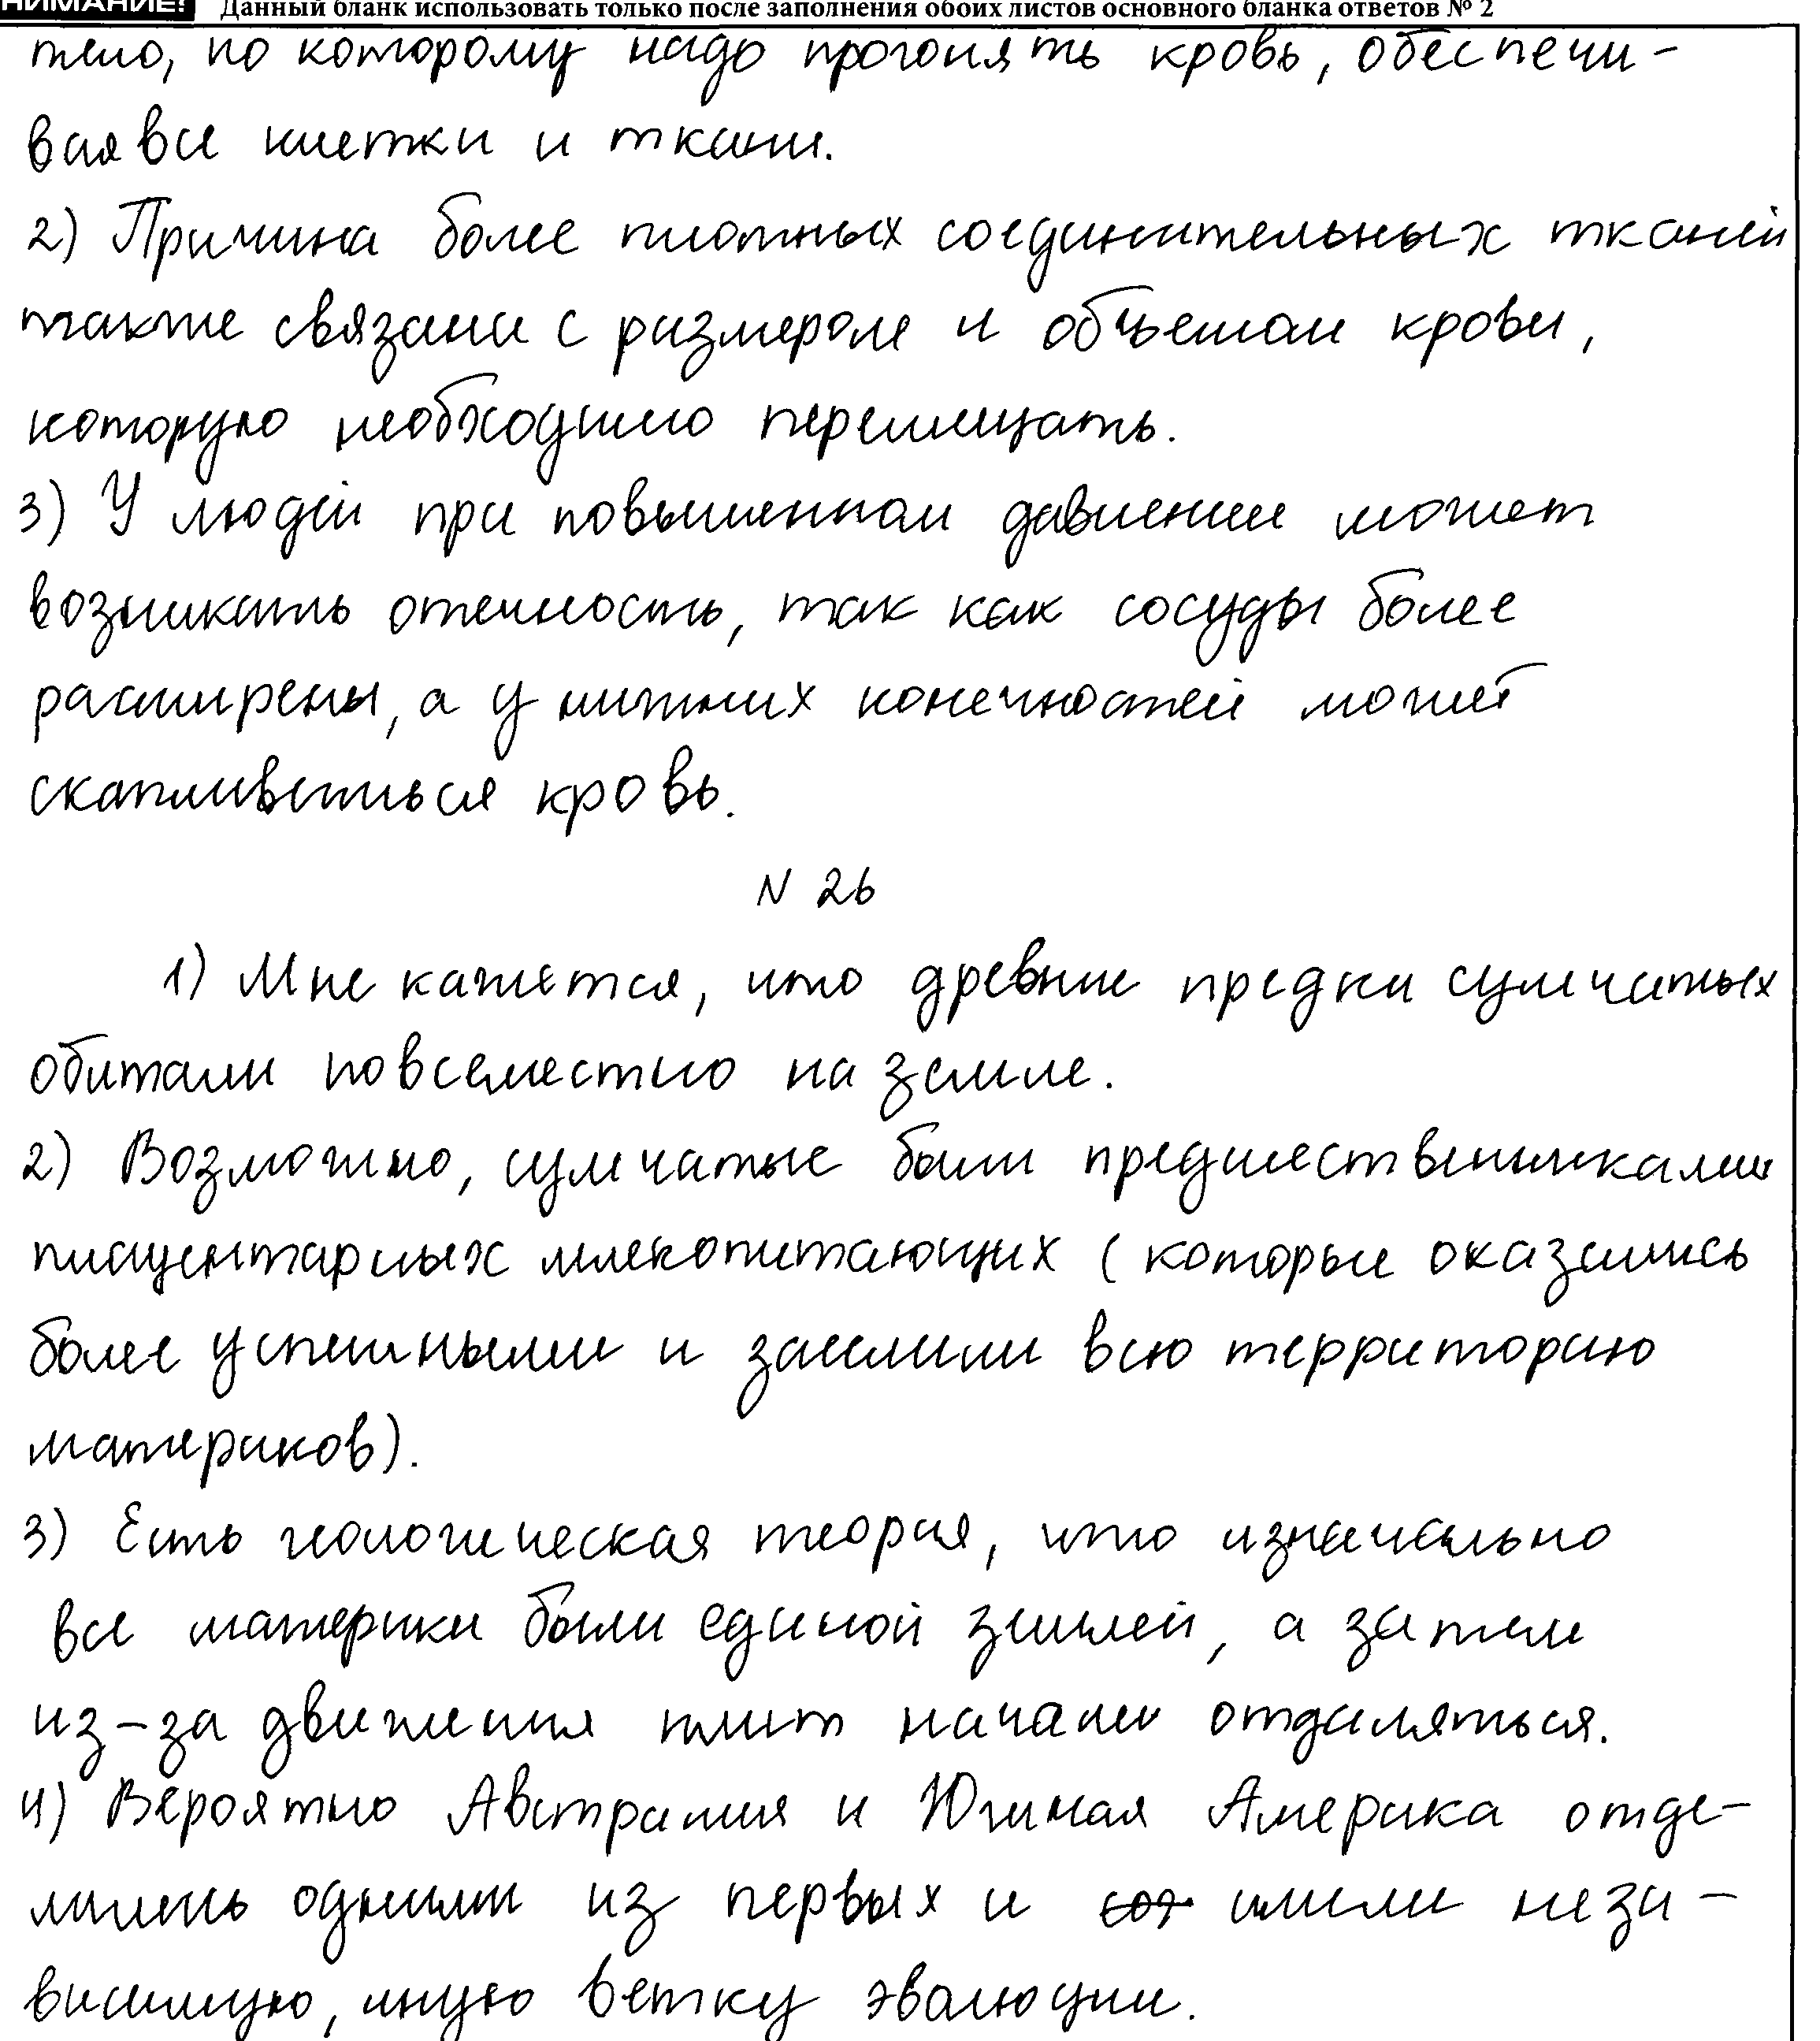 ВНИМАНИЕ! Данный бланк использовать только после заполнения обоих листов основного бланка ответов № 2
тело, по которому надо прогонять кровь, обеспечи-
вая все клетки и ткани.
2) Причина более плотных соединительных тканей
также связана с размером и объемом крови,
которую необходимо перемещать.
3) У людей при повышенном давлении может
возникать отечность, так как сосуды более
расширены, а у нижних конечностей может
скапливаться кровь.
N 26
1) Мне кажется, что древние предки сумчатых
обитали повсеместно на земле.
2) Возможно, сумчатые были предшественниками
плацентарных млекопитающих (которые оказались
более успешными и заселили всю территорию
материков).
3) Есть геологическая теория, что изначально
все материки были единой землей, а затем
из-за движения плит начали отдаляться.
4) Вероятно Австралия и Южная Америка отде-
лились одними из первых и имели неза-
висимую, иную ветку эволюции.